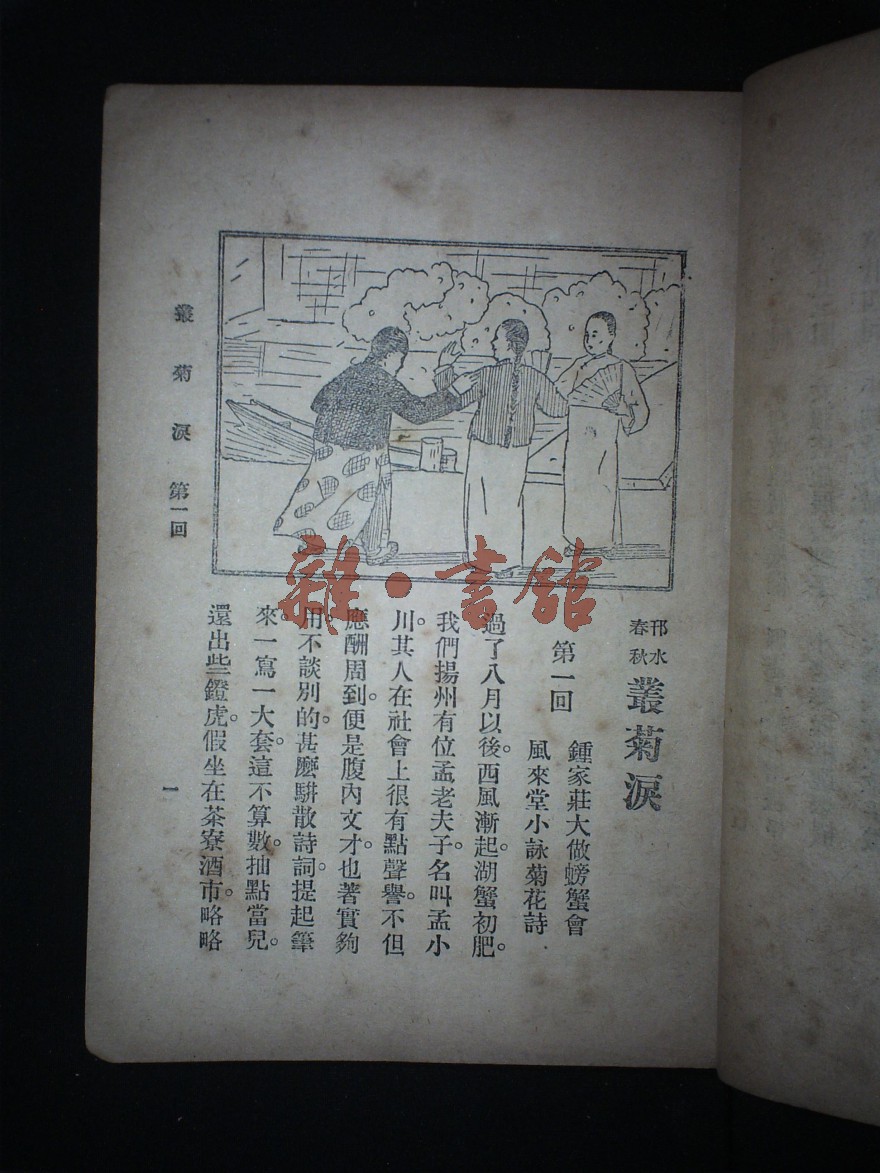 邗水
春秋
叢菊淚
第一回
鍾家莊大做螃蟹會
風來堂小詠菊花詩
過了八月以後。西風漸起。湖蟹初肥。
我們揚州有位孟老夫子。名叫孟小
川。其人在社會上很有點聲譽。不但
應酬周到。便是腹內文才。也著實夠
用。不談別的。甚麼駢散詩詞。提起筆
來。一寫一大套。這不算數。抽點當兒。
還出些鐙虎。假坐在茶寮酒市。略略
叢菊淚 第一回
一
雜·書館